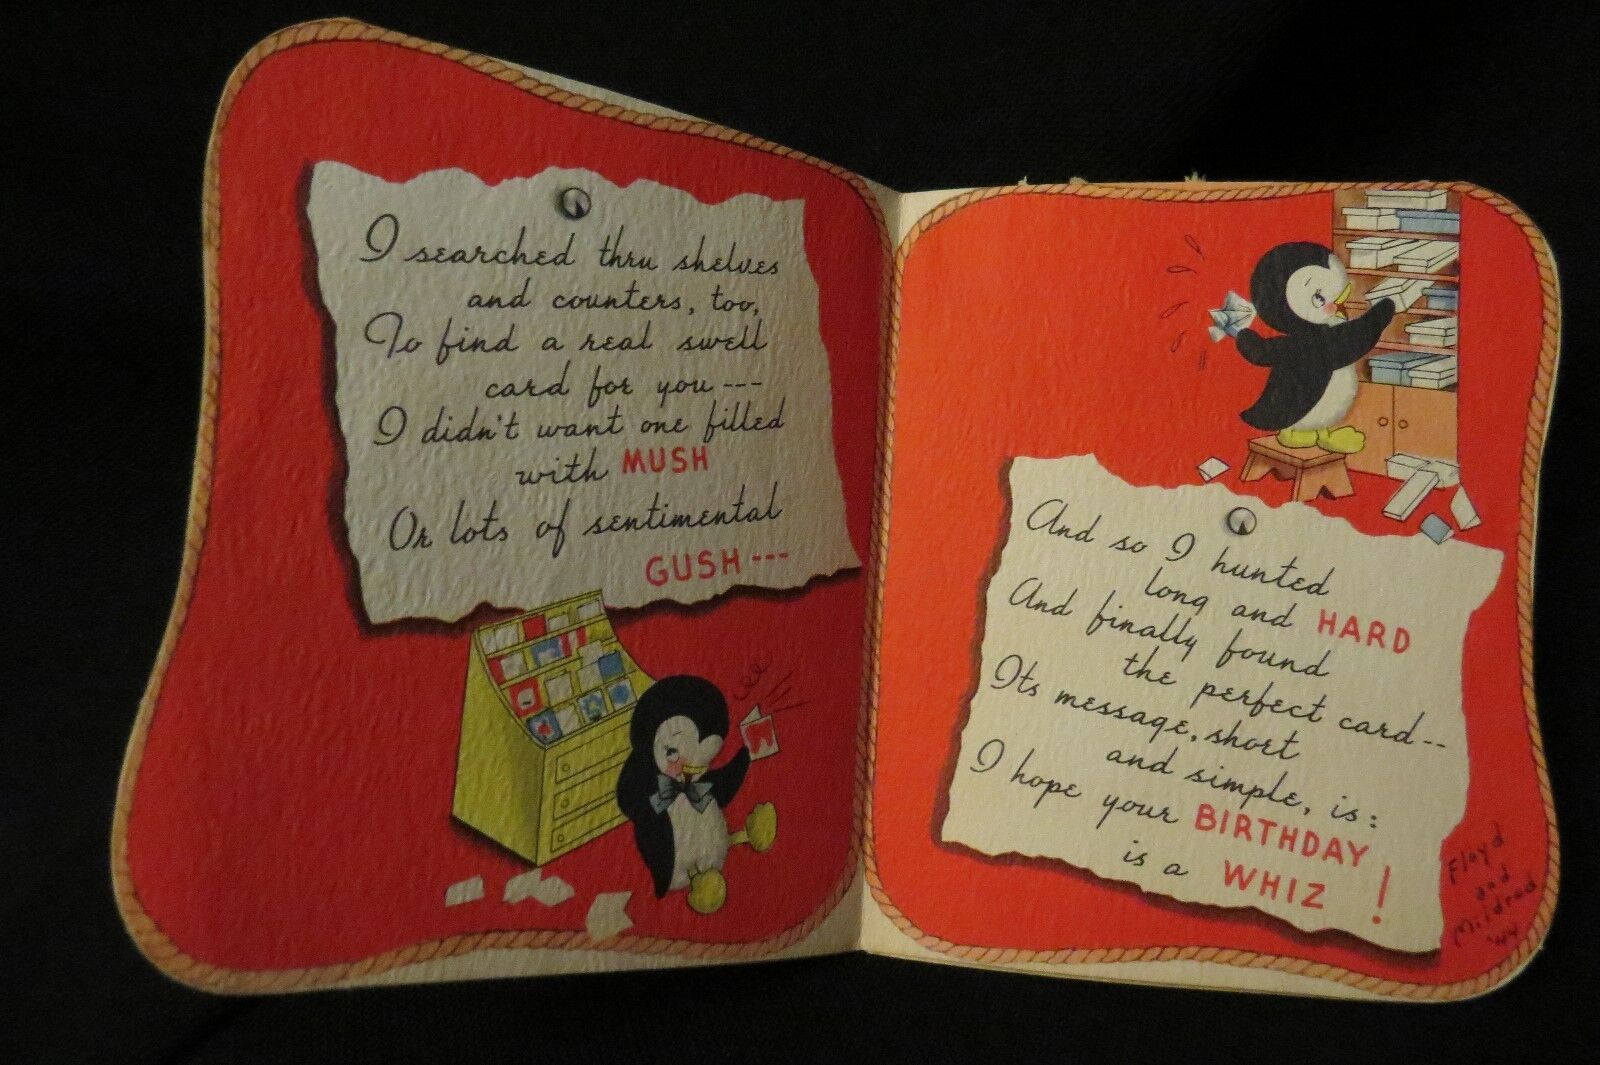 I searched thru shelves
and counters, too,
To find a real swell
card for you ---
I didn't want one filled
with MUSH
Or lots of sentimental
GUSH ---
And so I hunted
long and HARD
And finally found
the perfect card--
Its message, short
and simple, is:
I hope your BIRTHDAY
is a WHIZ !
Floyd
and
Mildred
'44